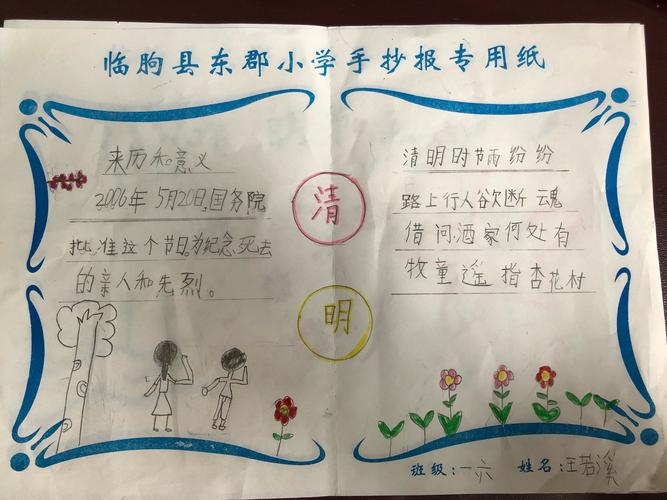 临朐县东郡小学手抄报专用纸
来历和意义
2006年5月20日,国务院
批准这个节日。为纪念死去
的亲人和先烈。
清
明
清明时节雨纷纷
路上行人欲断魂
借问酒家何处有
牧童遥指杏花村
班级:一六 姓名:王若溪